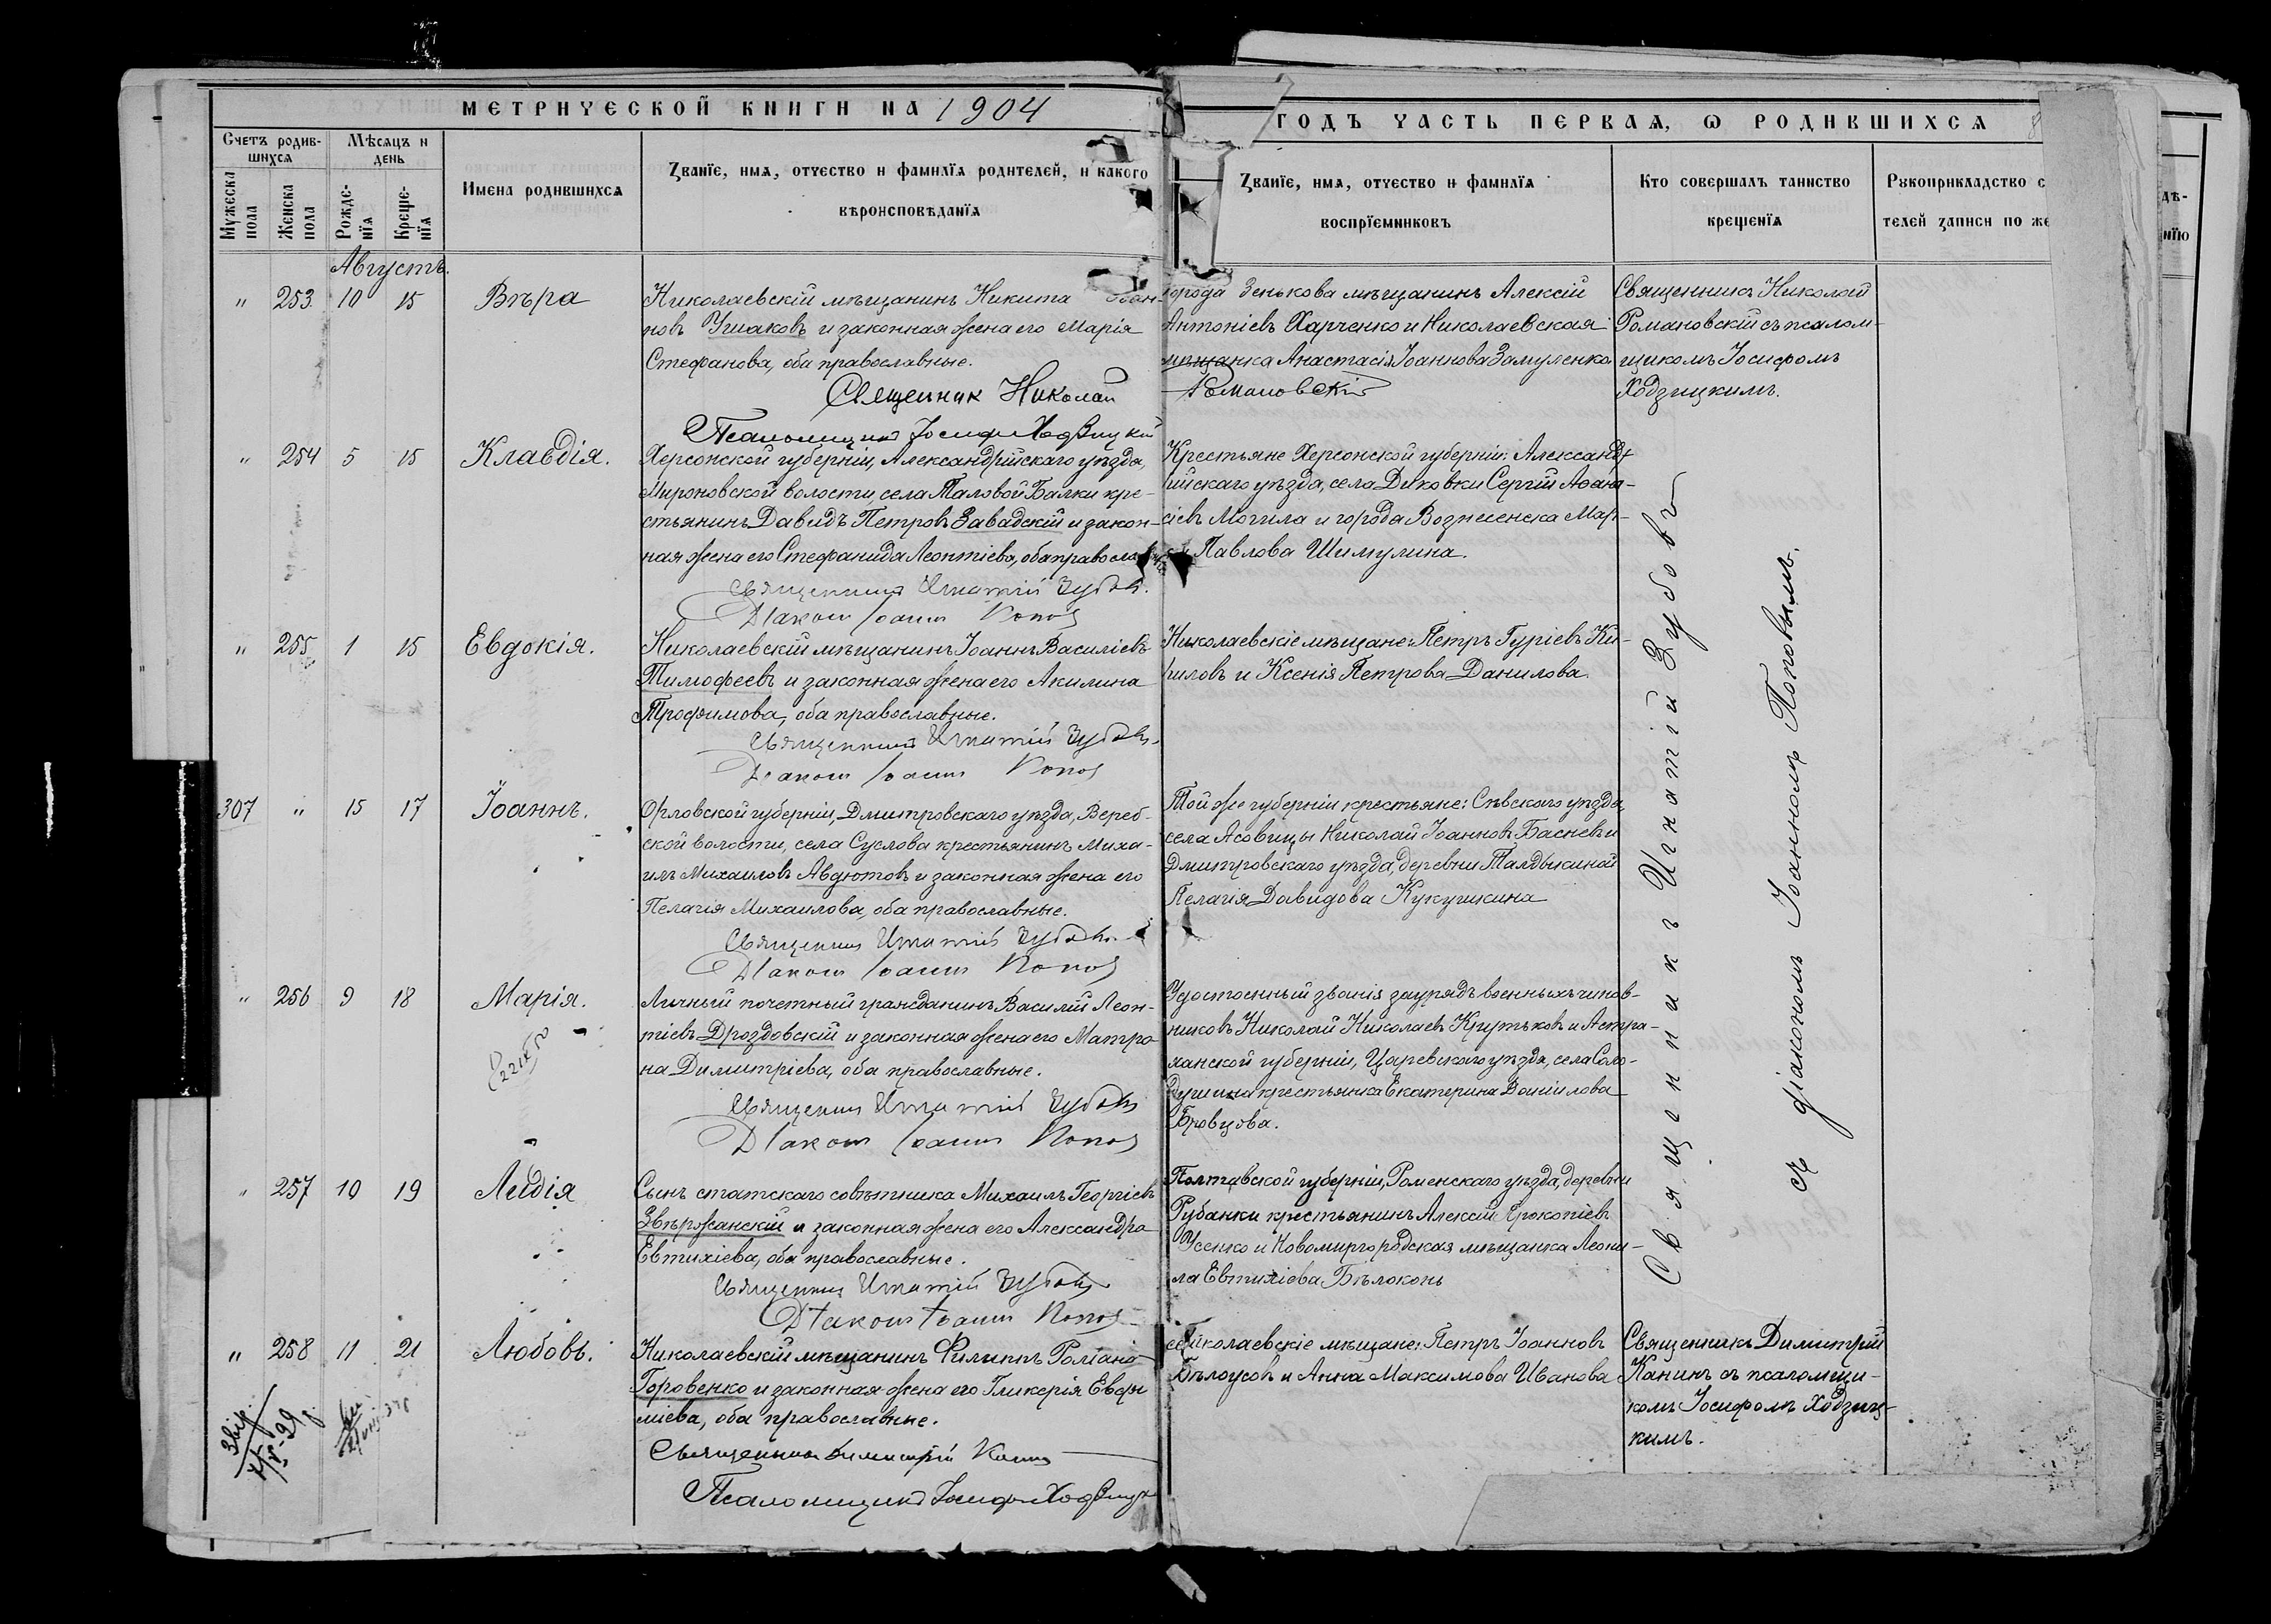 МЕТРИЧЕСКОЙ КНИГИ НА 1904
ГОДЪ ЧАСТЬ ПЕРВАЯ, Ѡ РОДИВШИХСЯ
Счетъ родив-
шихся
Мѣсяцъ и
день
Мужеска
пола
Женска
пола
Рожде-
нїя
Креще-
нїя
Имена родившихся
Званїе, имя, отчество и фамилїя родителей, и какого
вѣроисповѣданїя
Званїе, имя, отчество и фамилїя
воспрїемниковъ
Кто совершалъ таинство
крещенїя
Рукоприкладство с
телей записи по же
Августъ.
" 253 10 15 Вѣра
Николаевскій мѣщанинъ Никита Іоан-
новъ Ушаковъ и законная жена его Марія
Стефанова, оба православные.
Священник Николай
Романовскій
Псаломщикъ Іосифъ Ходзицкий
города Зенькова мѣщанинъ Алексій
Антоніевъ Харченко и Николаевская
мѣщанка Анастасія Іоаннова Замуленко
Священникъ Николай
Романовскій съ псалом-
щикомъ Іосифомъ
Ходзицкимъ.
" 254 5 15 Клавдія.
Херсонской губерніи, Александрійскаго уѣзда,
Мироновской волости, села Таловой Балки кре-
стьянинъ Давидъ Петровъ Завадскій и закон-
ная жена его Стефанида Леонтіева, оба правосла
Священникъ Игнатій Зубовъ.
Діаконъ Іоаннъ Попов
Крестьяне Херсонской губерніи: Александр
ійскаго уѣзда, села Диковки Сергій Афана-
сіевъ Могила и города Вознесенска Мар-
Павлова Шимулина.
" 255 1 15 Евдокія.
Николаевскій мѣщанинъ Іоаннъ Василіевъ
Тимофеевъ и законная жена его Акилина
Трофимова, оба православные.
Священникъ Игнатій Зубовъ.
Діаконъ Іоаннъ Попов
Николаевскіе мѣщане: Петръ Гуріевъ Ки-
риловъ и Ксенія Петрова Данилова.
307 " 15 17 Іоаннъ.
Орловской губерніи, Дмитровскаго уѣзда, Вереб-
ской волости, села Суслова крестьянинъ Миха-
илъ Михаиловъ Авдютовъ и законная жена его
Пелагія Михаилова, оба православные.
Священник Игнатій Зубовъ.
Діаконъ Іоаннъ Попов
Той же губерніи крестьяне: Сѣвскаго уѣзда,
села Асовицы Николай Іоанновъ Басневъ и
Дмитровскаго уѣзда, деревни Талдыкиной
Пелагія Давидова Кукушкина
" 256 9 18 Марія.
Личный почетный гражданинъ Василій Леон-
тіевъ Дроздовскій и законная жена его Матро-
на Димитріева, оба православные.
Священник Игнатій Зубовъ
Діаконъ Іоаннъ Попов
Удостоенный званія заурядъ военныхъ чинов-
никовъ Николай Николаевъ Крутьковъ и Астра-
ханской губерніи, Царевскаго уѣзда, села Соло-
душина крестьянка Екатерина Даніилова
Бровцова.
" 257 10 19 Лидія
Сынъ статскаго совѣтника Михаилъ Георгіевъ
Звѣржанскій и законная жена его Александра
Евтихіева, оба православные.
Священник Игнатій Зубовъ
Діаконъ Іоаннъ Попов
Полтавской губерніи, Роменскаго уѣзда, деревни
Рубанки крестьянинъ Алексій Прокопіевъ
Усенко и Новомиргородская мѣщанка Леони-
ла Евтихіева Бѣлоконь
Священникъ Игнатій Зубовъ
съ діакономъ Іоанномъ Поповымъ.
" 258 11 21 Любовь.
Николаевскій мѣщанинъ Филиппъ Роліано
Горовенко и законная жена его Гликерія Евфи
міева, оба православные.
Священникъ Димитрій Канин
Псаломщикъ Іосифъ Ходзицк
Николаевскіе мѣщане: Петръ Іоанновъ
Бѣлоусовъ и Анна Максимова Иванова
Священникъ Димитрій
Канинъ съ псаломщи-
комъ Іосифомъ Ходзиц-
кимъ.